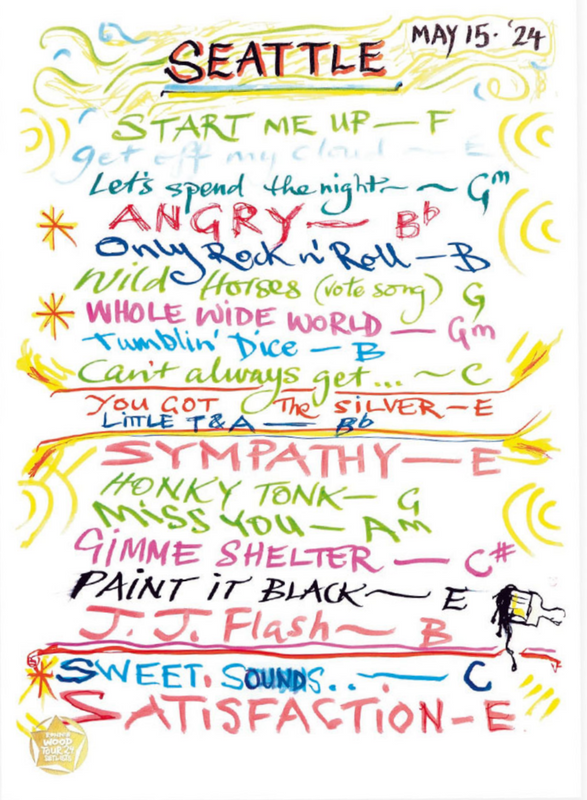 SEATTLE
MAY 15. '24
START ME UP — F
get off my cloud - E
Let's spend the night ~ ~ Gm
ANGRY — Bb
Only Rock n' Roll — B
Wild Horses (vote song) G
WHOLE WIDE WORLD — Gm
Tumblin' Dice — B
Can't always get... ~ C
YOU GOT The SILVER — E
LITTLE T&A — Bb
SYMPATHY — E
HONKY TONK — G
MISS YOU — Am
GIMME SHELTER — C#
PAINT IT BLACK ~ E
J. J. Flash ~ B
SWEET. SOUNDS.. — C
SATISFACTION - E
WOOD
TOUR 24